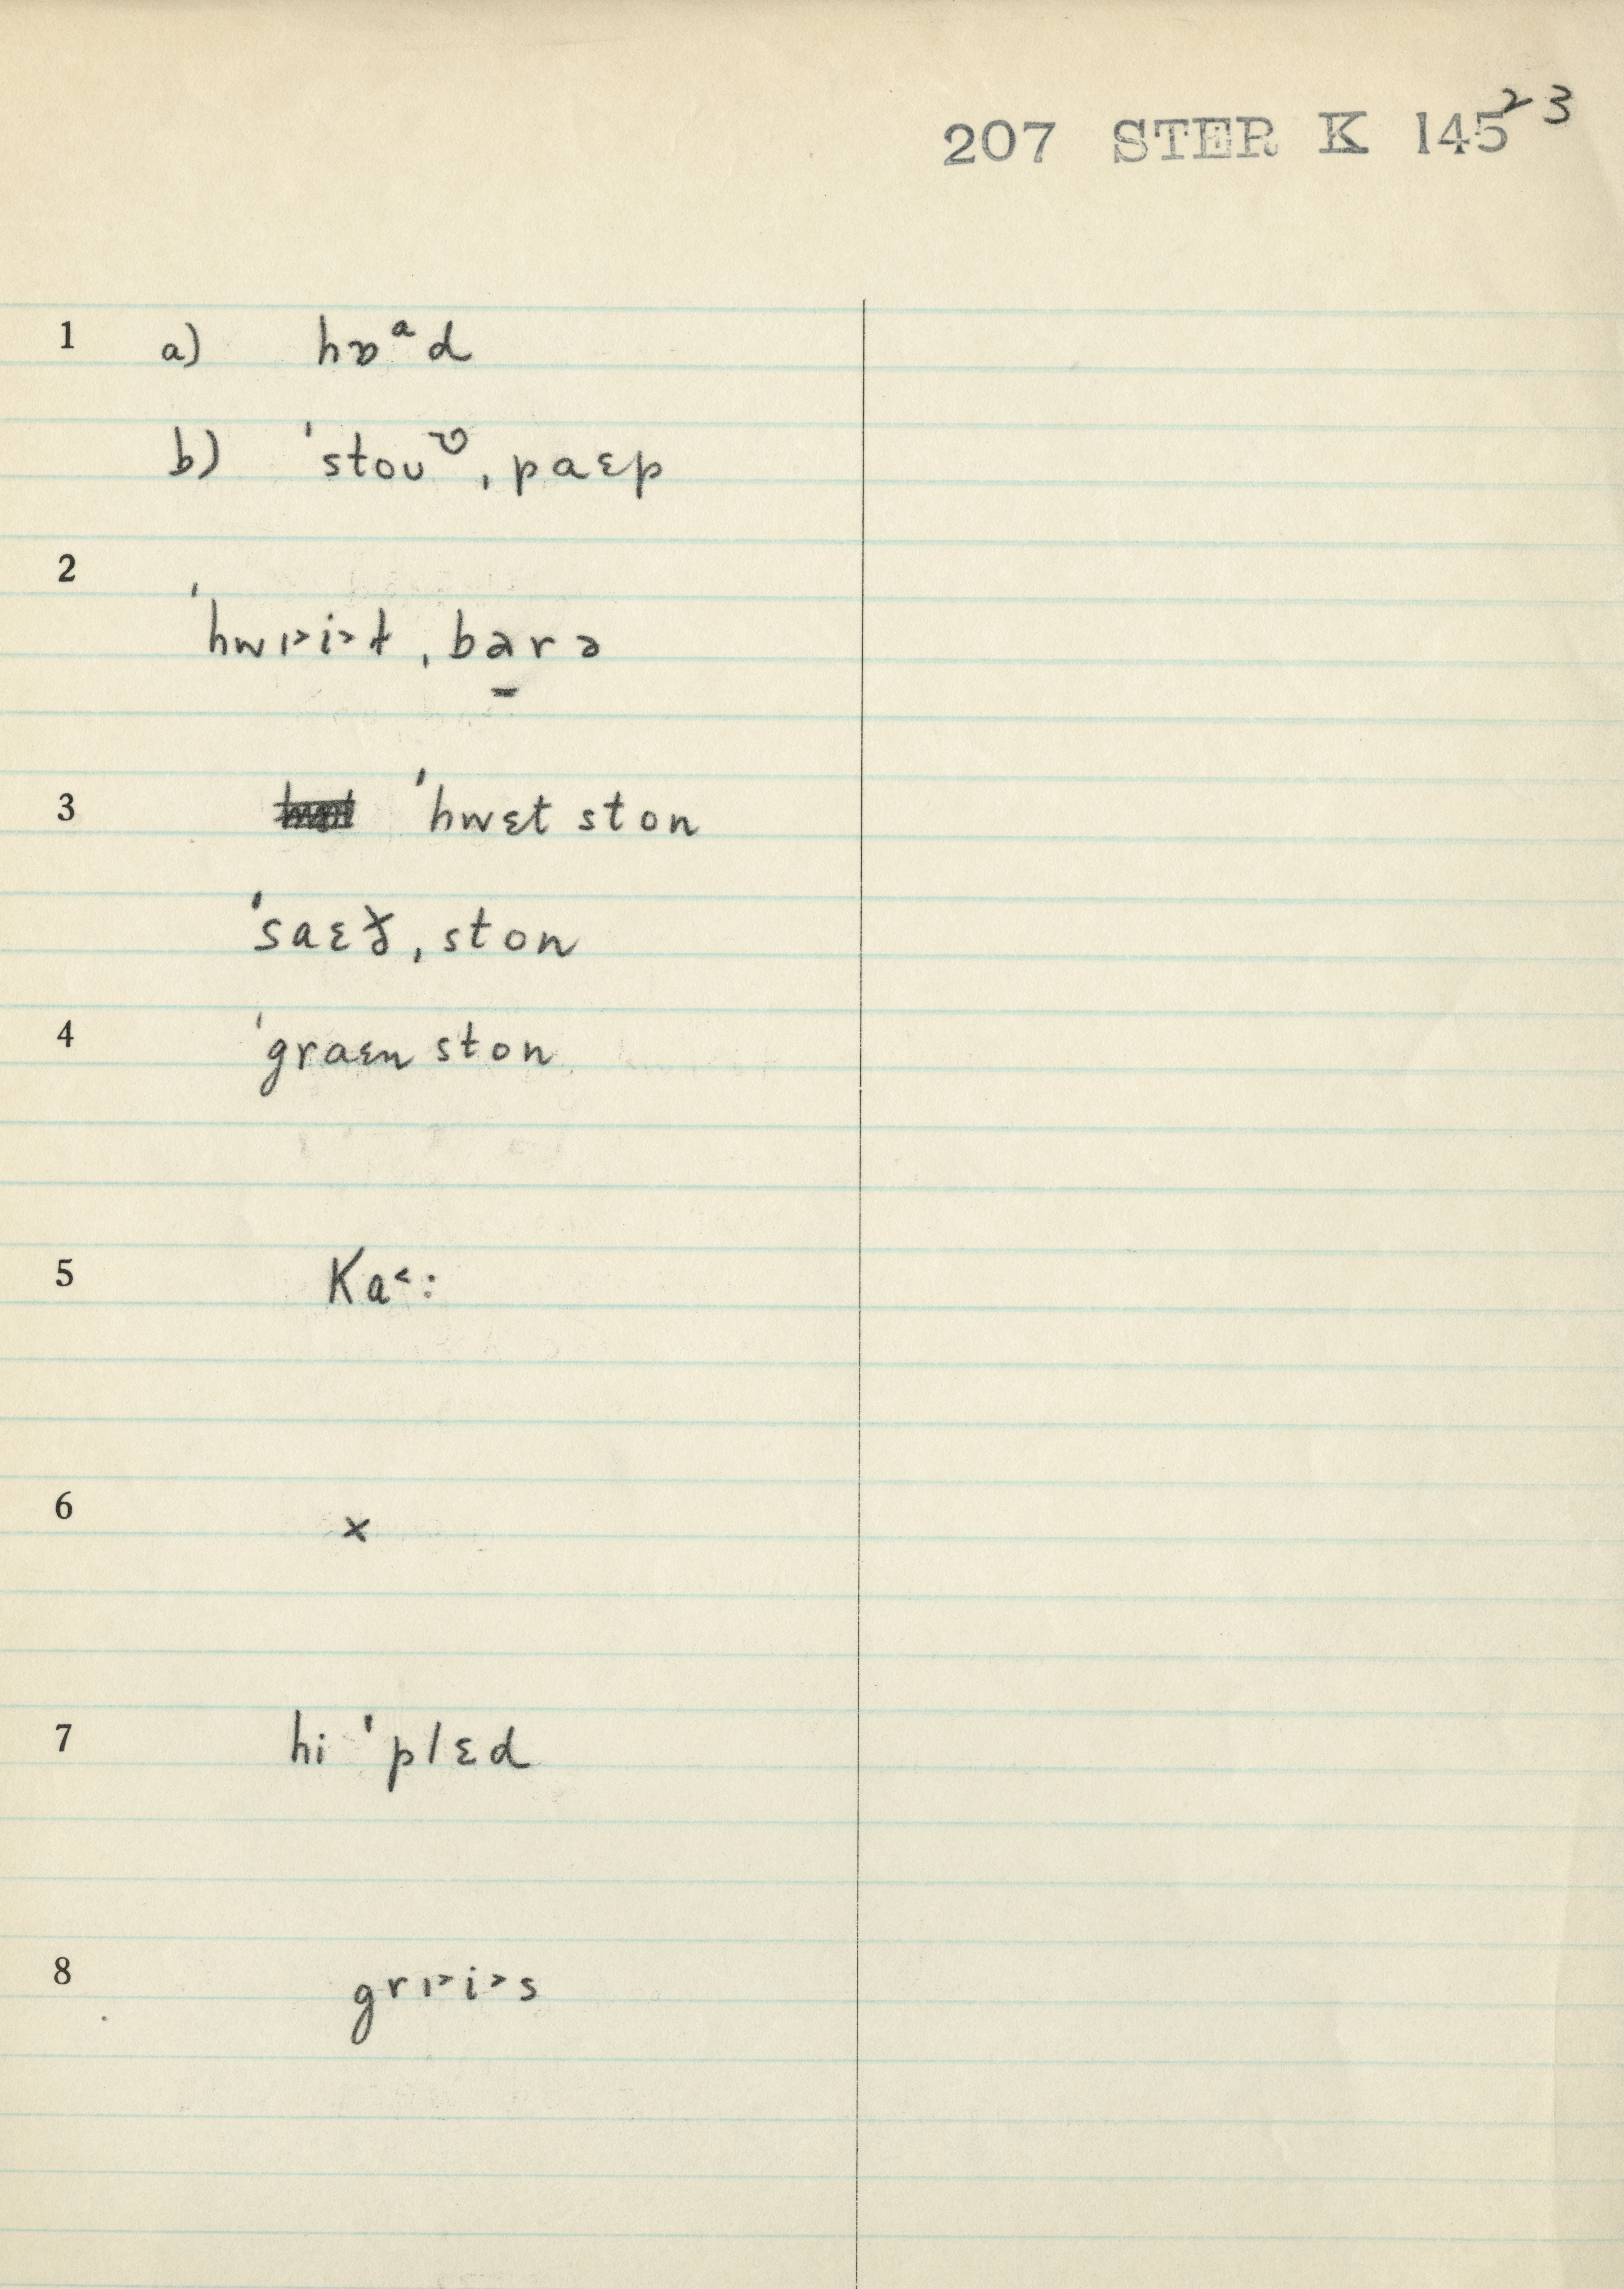 207 STER K 145 23
1 a) hɒᵃd
b) ˈstouʊ ˌpaɛp
2
ˈhwɪ˃i˃t ˌbarə
3 ˈhwɛt ston
ˈsaɛð ˌston
4 ˈgraɛn ston
5 Ka˂:
6 x
7 hi ˈplɛd
8 grɪ˃i˃s